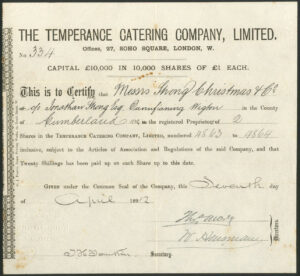 THE TEMPERANCE CATERING COMPANY, LIMITED.
Offices, 27, SOHO SQUARE, LONDON, W.
No. 334
CAPITAL £10,000 IN 10,000 SHARES OF £1 EACH.
This is to Certify that Messrs Strong Christmas & Co
of c/o Jonathan Strong Esq. Wigton in the County
of Cumberland registered Proprietor of 2
Shares in the TEMPERANCE CATERING COMPANY, LIMITED, numbered 4863 to 4864
inclusive, subject to the Articles of Association and Regulations of the said Company, and that
Twenty Shillings has been paid up on each Share up to this date.
GIVEN under the Common Seal of the Company, this Seventh day
of April
Directors.
Secretary.